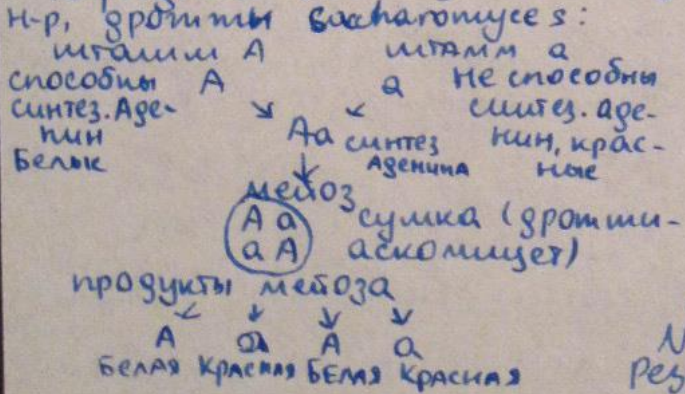 н-р, дрожжы Saccharomyces:
штамм А штамм а
способны А а не способны
синтез. Аде- синтез. аде-
нин Аа синтез нин, крас-
Белые Аденина ные
мейоз
А а сумка (дрожжи-
а А аскомицет)
продукты мейоза
А а А а
БЕЛАЯ КРАСНАЯ БЕЛАЯ КРАСНАЯ
рез